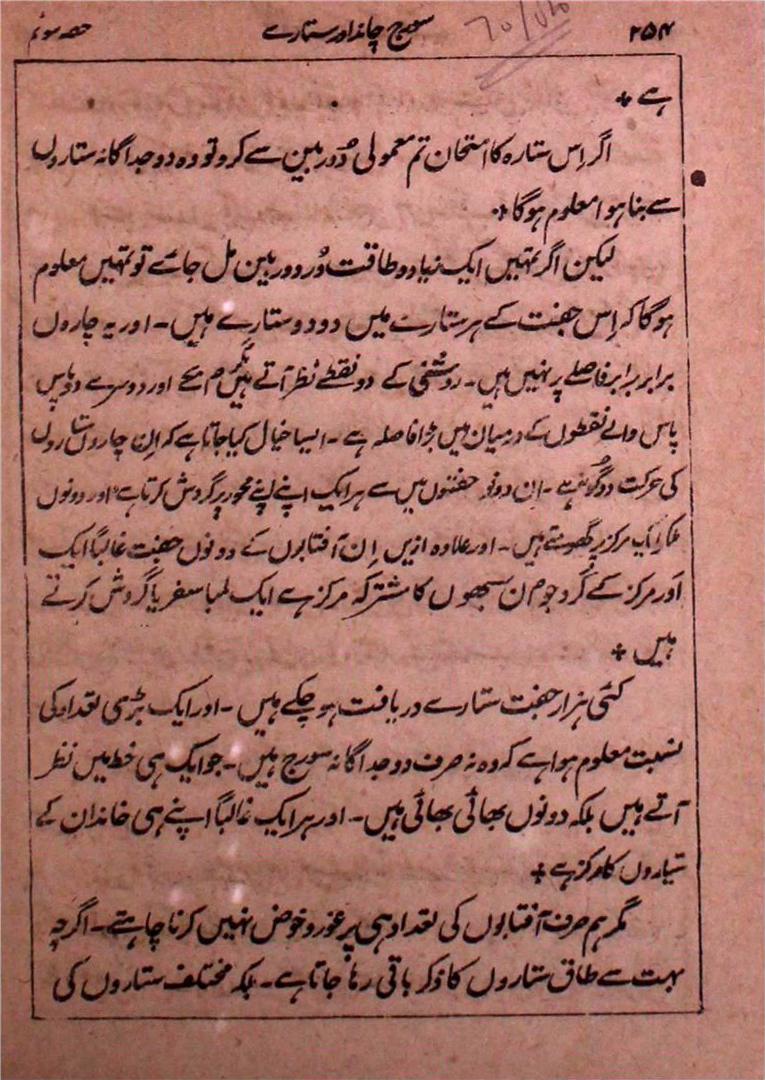 ۲۵۴ سورج چاند اور ستارے حصہ سوئم
ہے +
اگر اِس ستارہ کا امتحان تم معمولی دُوربین سے کرو تو وہ دو جداگانہ ستاروں
سے بنا ہوا معلوم ہوگا +
لیکن اگر تمہیں ایک زیادہ طاقت ور دوربین مل جائے تو تمہیں معلوم
ہوگا کہ اِس جفت کے ہر ستارے میں دو دو ستارے ہیں۔ اور یہ چاروں
برابر برابر فاصلے پر نہیں ہیں۔ روشنی کے دو نقطے نظر آتے ہیں مگر بیچ اور دوسرے دو پاس
پاس والے نقطوں کے درمیان میں بڑا فاصلہ ہے۔ ایسا خیال کیا جاتا ہے کہ اِن چاروں ستاروں
کی حرکت دوگونہ ہے۔ ان دونو جفتوں میں سے ہر ایک اپنے اپنے محور پر گردش کرتا ہے اور دونوں
ملکر ایک مرکز پر گھومتے ہیں۔ اور علاوہ ازیں اِن آفتابوں کے دونوں جفت غالباً ایک
اَور مرکز کے گرد جو م ن سبھوں کا مشترکہ مرکز ہے ایک لمبا سفر یا گردش کرتے
ہیں +
کئی ہزار جفت ستارے دریافت ہو چکے ہیں۔ اور ایک بڑی تعداد کی
نسبت معلوم ہوا ہے کہ وہ نہ صرف دو جداگانہ سورج ہیں۔ جو ایک ہی خط میں نظر
آتے ہیں بلکہ دونوں بھائی بھائی ہیں۔ اور ہر ایک غالباً اپنے ہی خاندان کے
سیاروں کا مرکز ہے +
مگر ہم صرف آفتابوں کی تعداد ہی پر غور و خوض نہیں کرنا چاہتے۔ اگرچہ
بہت سے طاق ستاروں کا ذکر باقی رہا جاتا ہے۔ بلکہ مختلف ستاروں کی